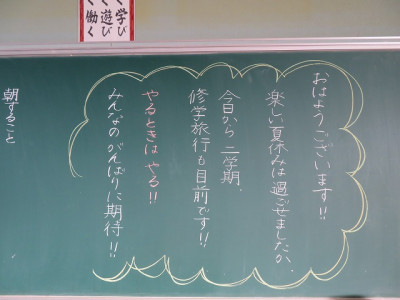 く学び
く遊び
く働く
おはようございます!!
楽しい夏休みは過ごせましたか。
今日から二学期。
修学旅行も目前です!!
やるときはやる!!
みんなのがんばりに期待!!
朝すること